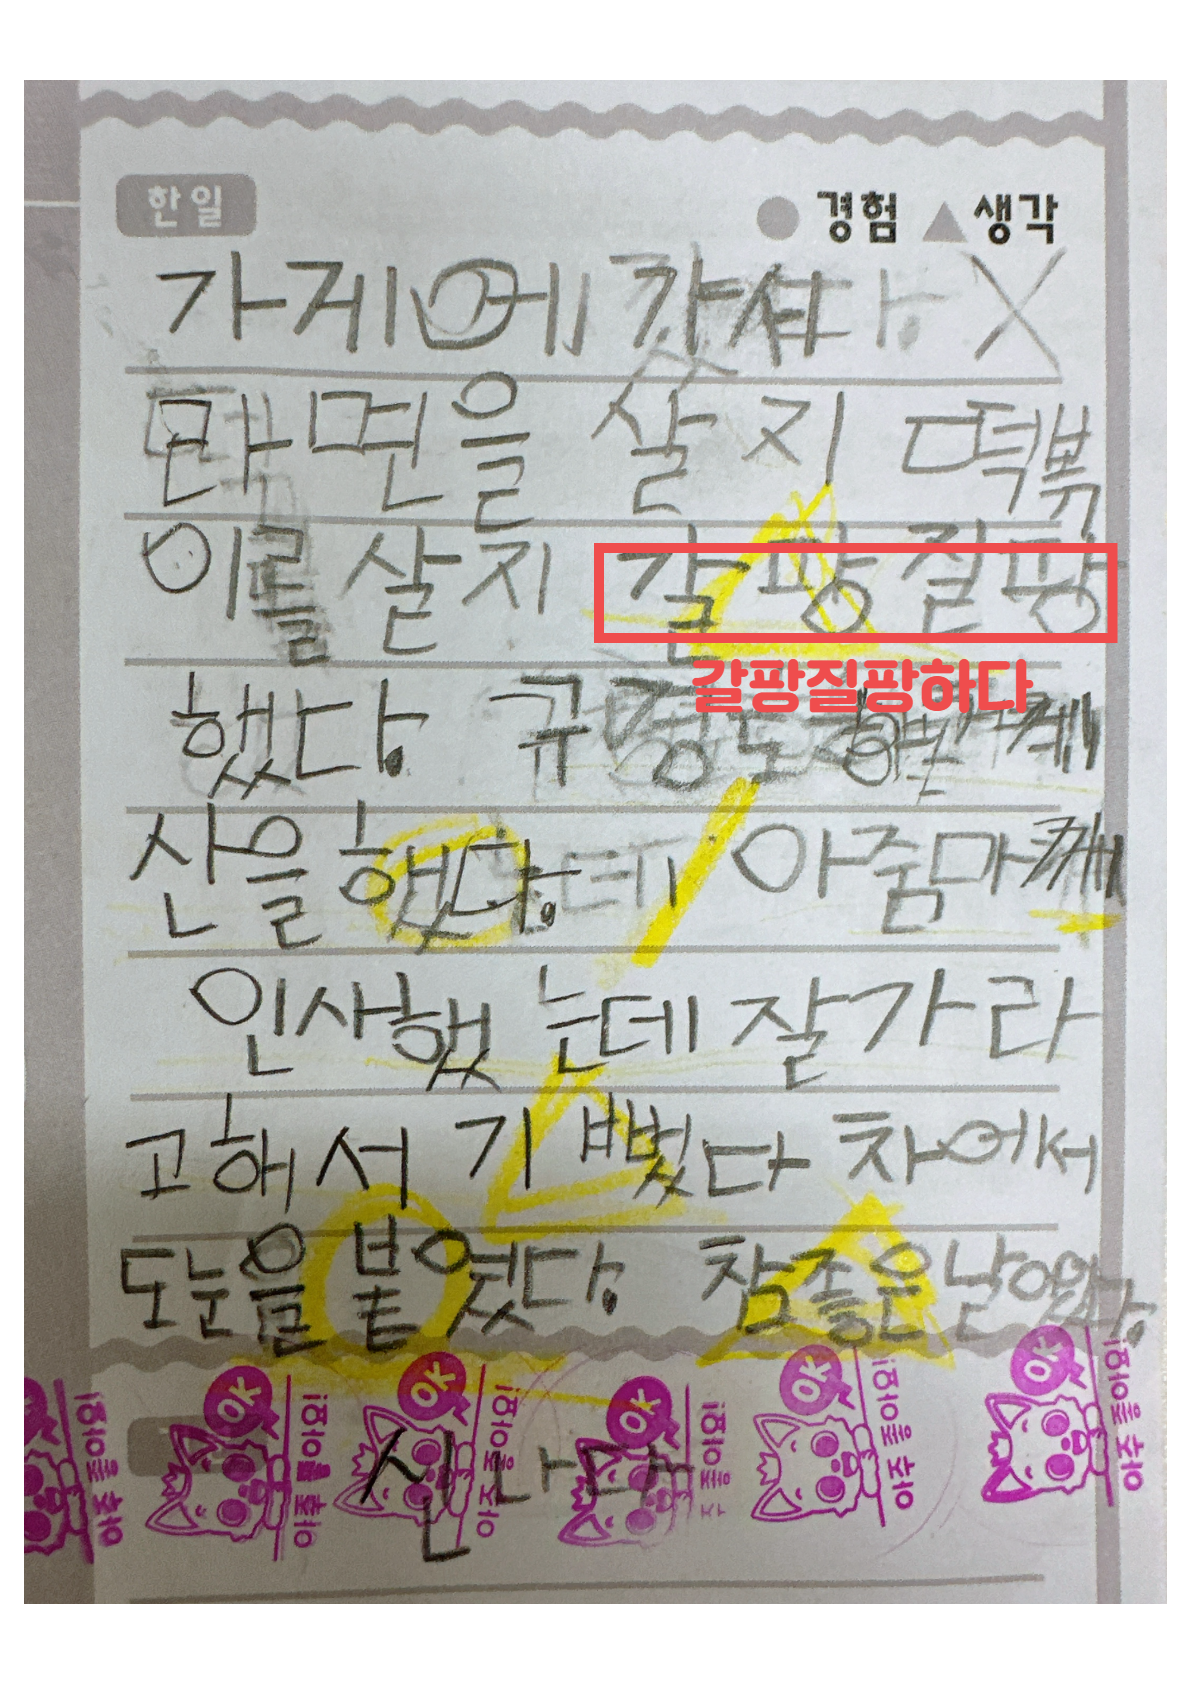 한일
경험 생각
가게에 갔셔
라면을 살지 떡볶
이를 살지 갈팡질팡
갈팡질팡하다
했다. 구경도
산을 했다. 아줌마께
인사했는데 잘가라
고해서 기뻤다 차에서
도눈을 붙였다. 참좋은날이었다.
신나다
OK 아주 좋아요!
OK 아주 좋아요!
OK 아주 좋아요!
OK 아주 좋아요!
OK 아주 좋아요!